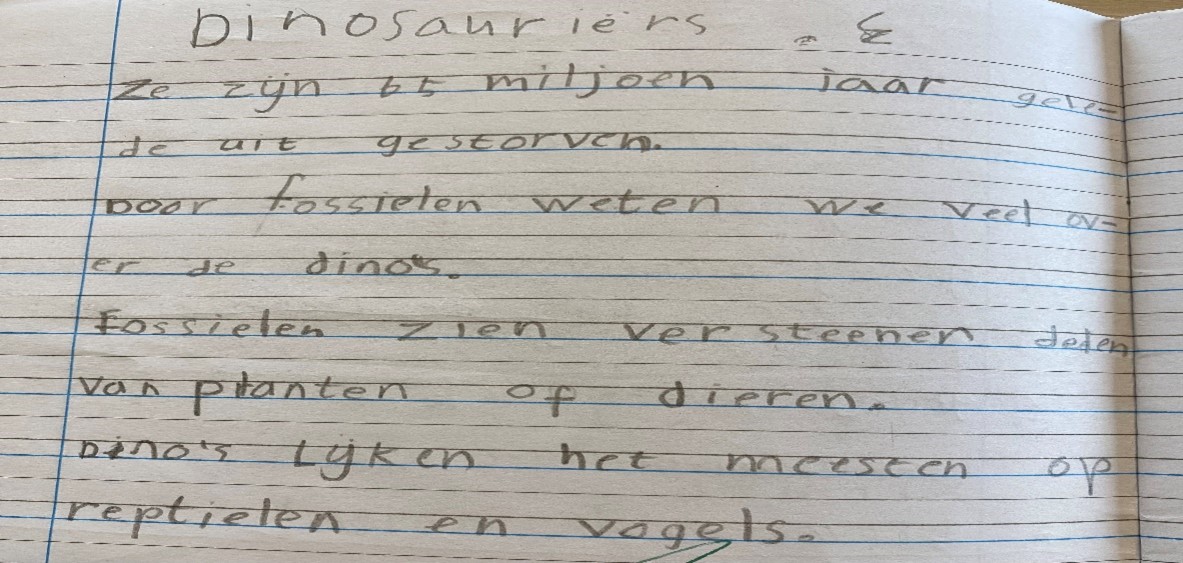 Dinosauriërs
ze zijn 65 miljoen jaar gele-
de uit gestorven.
Door fossielen weten we veel ov-
er de dino's.
Fossielen zien versteenen delen
van planten of dieren.
Dino's lijken het meesten op
reptielen en vogels.